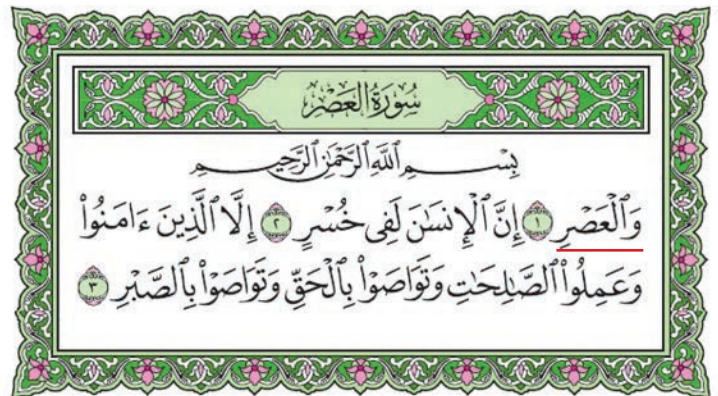 سُورَةُ العَصۡرِ
بِسۡمِ ٱللَّهِ ٱلرَّحۡمَٰنِ ٱلرَّحِيمِ
وَٱلۡعَصۡرِ ١ إِنَّ ٱلۡإِنسَٰنَ لَفِي خُسۡرٍ ٢ إِلَّا ٱلَّذِينَ ءَامَنُواْ
وَعَمِلُواْ ٱلصَّٰلِحَٰتِ وَتَوَاصَوۡاْ بِٱلۡحَقِّ وَتَوَاصَوۡاْ بِٱلصَّبۡرِ ٣